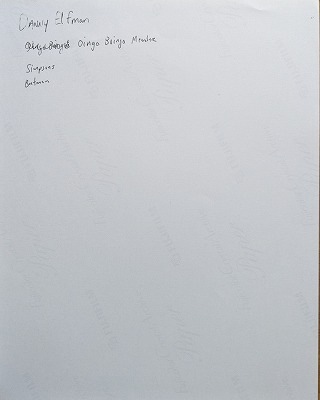 Danny Elfman
Oingo Boingo Member
Simpsons
Batman